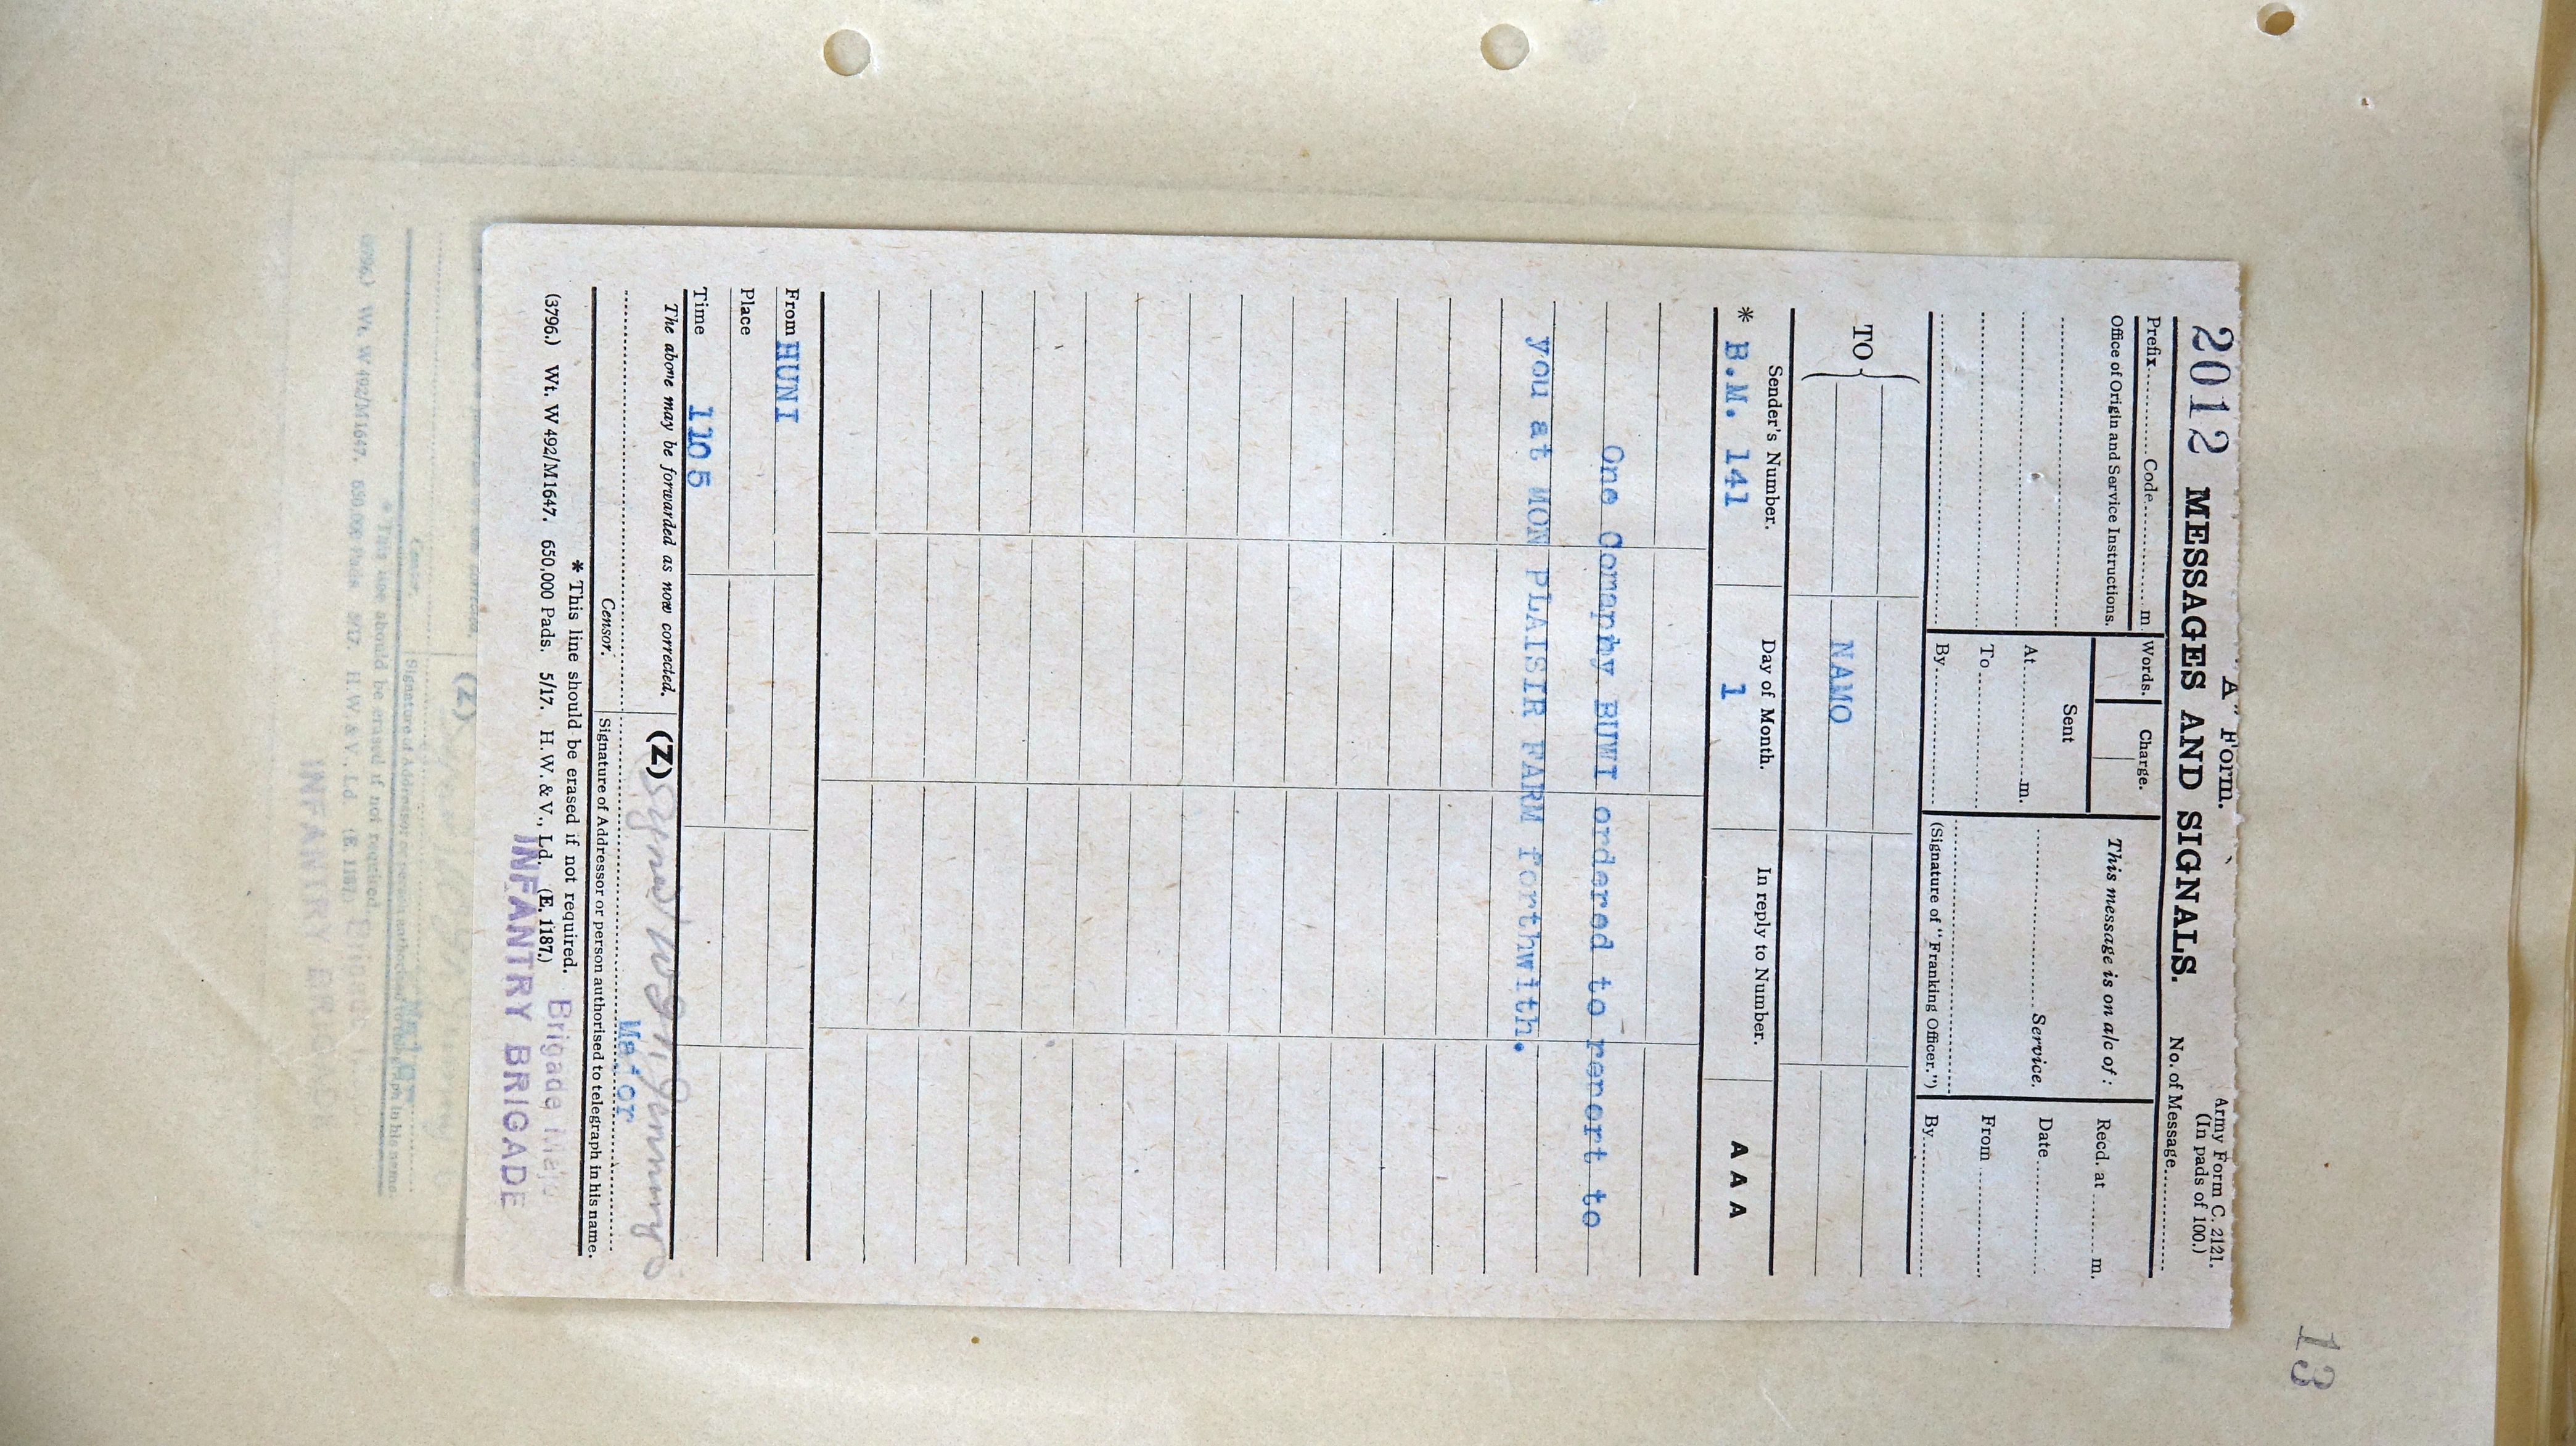 13
"A" Form.
Army Form C. 2121.
(In pads of 100.)
2012 MESSAGES AND SIGNALS.
No. of Message
Prefix Code m.
Words. Charge.
Office of Origin and Service Instructions.
This message is on a/c of:
Recd. at m.
Sent
At m.
Service.
Date
To
From
By
(Signature of "Franking Officer.")
By
TO
NAMO
Sender's Number. Day of Month. In reply to Number.
* B.M. 141 1 A A A
One Comapny BUWI ordered to report to
you at MON PLAISIR FARM forthwith.
From HUNI
Place
Time 1105
The above may be forwarded as now corrected. (Z)
Signed
Major
Censor. Signature of Addressor or person authorised to telegraph in his name.
* This line should be erased if not required.
(3796.) Wt. W 492/M1647. 650,000 Pads. 5/17. H.W. & V., Ld. (E. 1187.)
Brigade Majo
INFANTRY BRIGADE